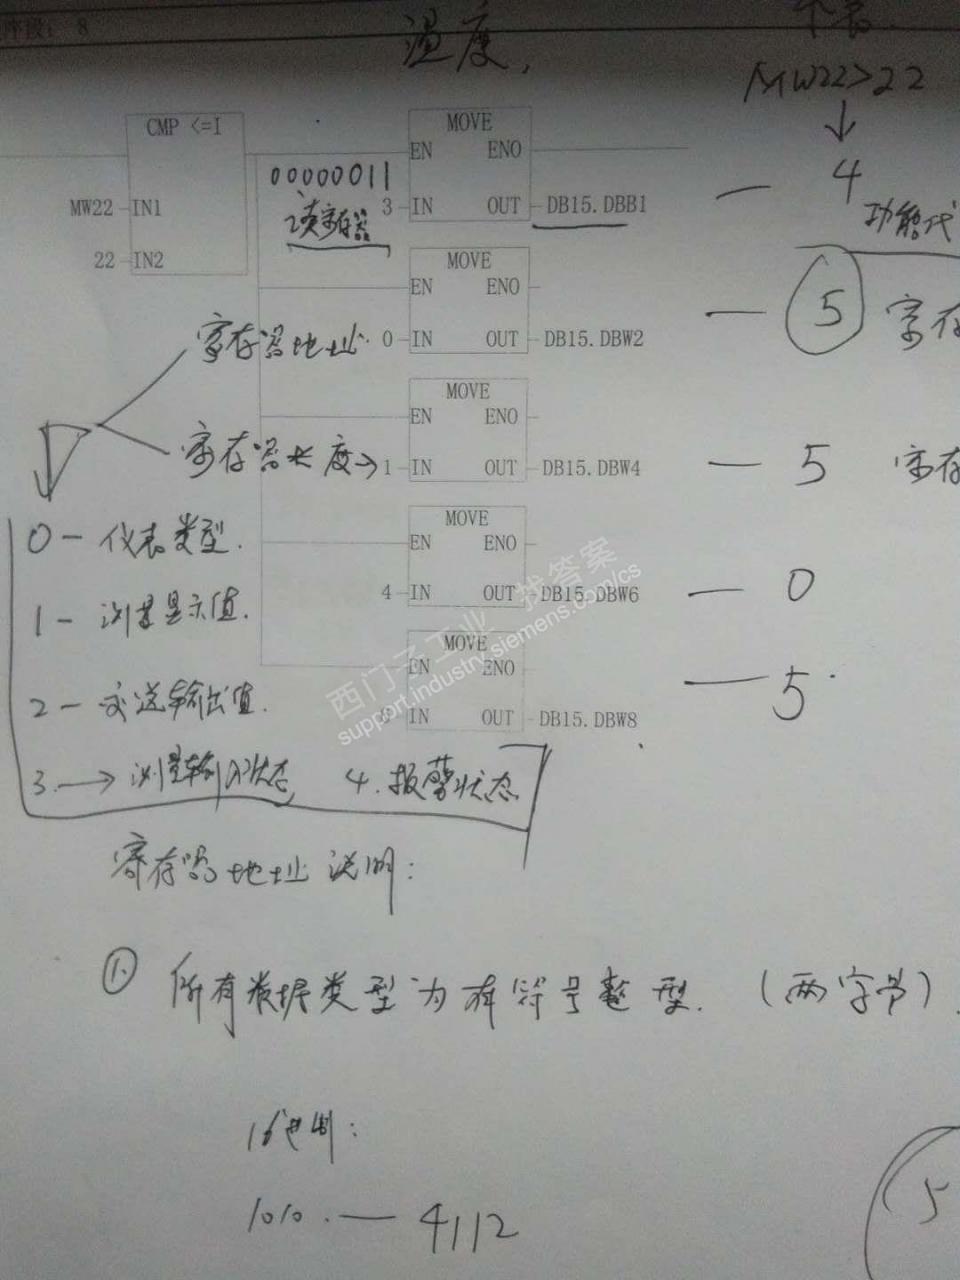 座段: 8
温度,
MW22>22
CMP <=I
MOVE
EN ENO
00000011
4
MW22 IN1
3 IN OUT DB15.DBB1
读寄存器
功能代
22 IN2
MOVE
EN ENO
5
寄存
寄存器地址. 0 IN OUT DB15.DBW2
MOVE
EN ENO
寄存器长度→ 1 IN OUT DB15.DBW4
5 寄存
MOVE
0 - 仪表类型.
EN ENO
4 IN OUT DB15.DBW6
0
1 - 测量显示值.
MOVE
EN ENO
2 - 变送输出值.
IN OUT DB15.DBW8
5
西门子工业 找答案
support.industry.siemens.com/cs
3. → 测量输入状态 4. 报警状态
寄存器地址说明:
① 所有数据类型为有符号整型. (两字节)
16进制:
1010. — 4112
5